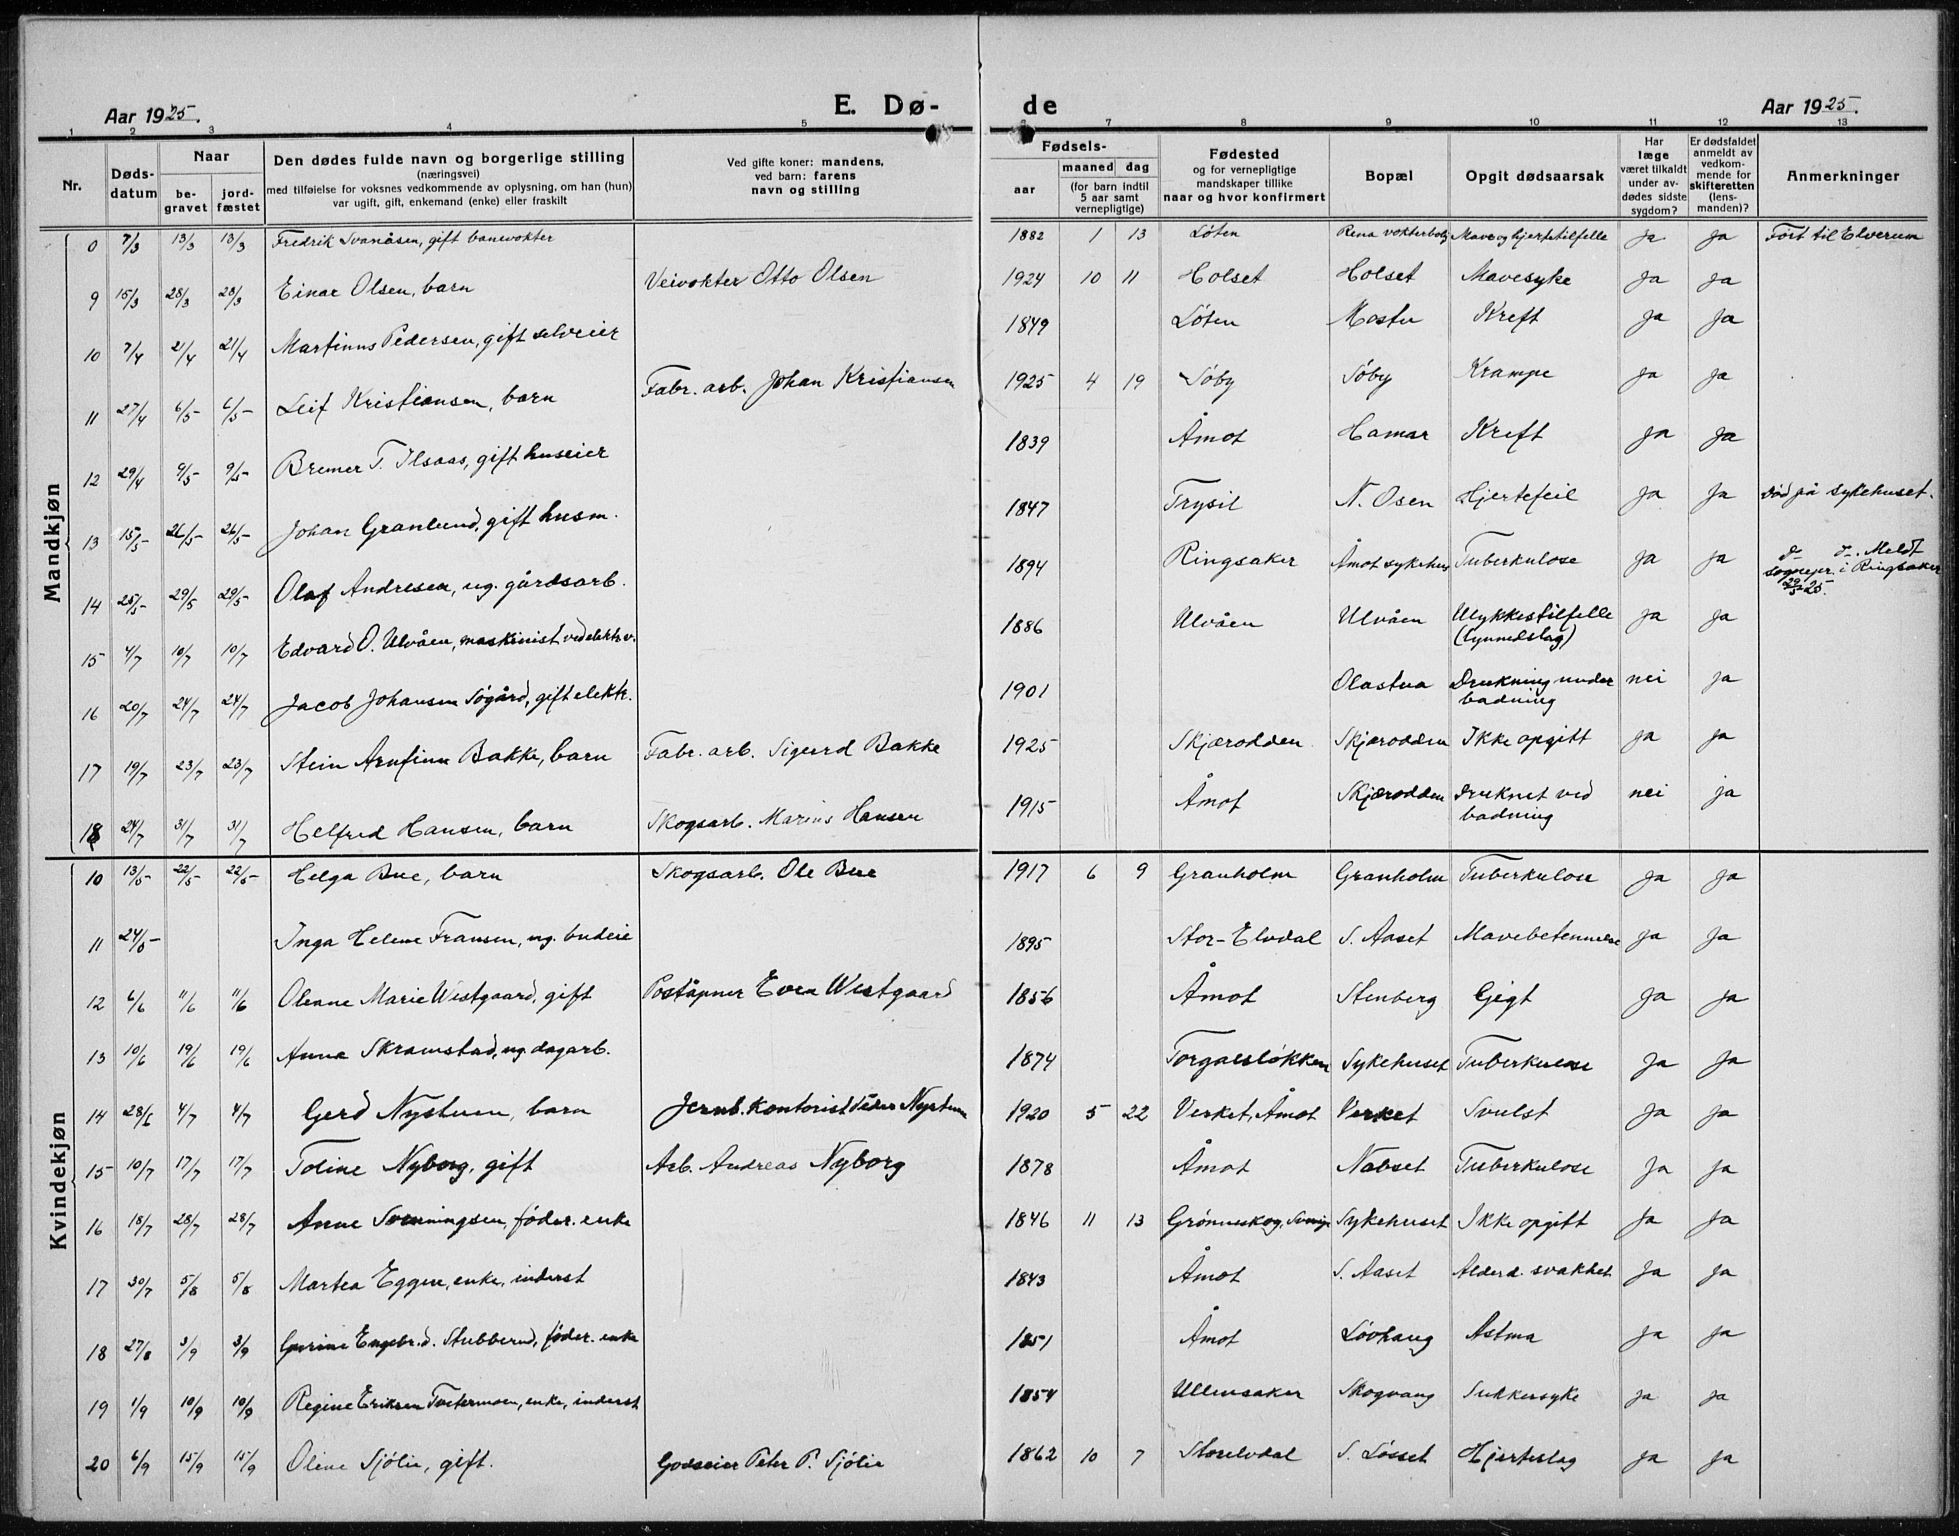 Aar 1925.
E. Dø-
de
Aar 1925.
1 2 3 4 5 6 7 8 9 10 11 12 13
Nr.
Døds-
datum
Naar
be-
gravet
jord-
fæstet
Den dødes fulde navn og borgerlige stilling
(næringsvei)
med tilføielse for voksnes vedkommende av oplysning, om han (hun)
var ugift, gift, enkemand (enke) eller fraskilt
Ved gifte koner: mandens,
ved barn: farens
navn og stilling
Fødsels-
aar
maaned
dag
(for barn indtil
5 aar samt
vernepligtige)
Fødested
og for vernepligtige
mandskaper tillike
naar og hvor konfirmert
Bopæl
Opgit dødsaarsak
Har
læge
været tilkaldt
under av-
dødes sidste
sygdom?
Er dødsfaldet
anmeldt av
vedkom-
mende for
skifteretten
(lens-
manden)?
Anmerkninger
Mandkjøn
0 7/3 13/3 13/3 Fredrik Svanåsen, gift banevokter 1882 1 13 Løten Rena vokterbolig Mave og hjertetilfelle Ja Ja Ført til Elverum
9 15/3 28/3 28/3 Einar Olsen, barn Veivokter Otto Olsen 1924 10 11 Holset Holset Mavesyke Ja Ja
10 7/4 21/4 21/4 Martinus Pedersen, gift selveier 1849 Løten Mostu Kreft Ja Ja
11 27/4 6/5 6/5 Leif Kristiansen, barn Fabr. arb. Johan Kristiansen 1925 4 19 Søby Søby Krampe Ja Ja
12 29/4 9/5 9/5 Bremer T. Ilsaas, gift huseier 1839 Åmot Hamar Kreft Ja Ja
13 15/5 26/5 26/5 Johan Granlund, gift husm. 1847 Trysil N. Osen Hjertefeil Ja Ja Død på sykehuset.
14 25/5 29/5 29/5 Olaf Andresen, ug. gårdsarb. 1894 Ringsaker Åmot sykehus Tuberkulose Ja Ja d– d–. Meldt
sognepr. i Ringsaker
29/5 25.
15 4/7 10/7 10/7 Edvard O. Ulvåen, maskinist ved elektr.v. 1886 Ulvåen Ulvåen Ulykkestilfelle
(lynnedslag) Ja Ja
16 20/7 24/7 24/7 Jacob Johansen Søgård, gift elektr. 1901 Olastua Drukning under
badning nei Ja
17 19/7 23/7 23/7 Stein Arnfinn Bakke, barn Fabr. arb. Sigurd Bakke 1925 Skjærodden Skjærodden Ikke opgitt Ja Ja
18 24/7 31/7 31/7 Helfred Hansen, barn Skogsarb. Marius Hansen 1915 Åmot Skjærodden Druknet ved
badning nei ja
Kvindekjøn
10 13/5 22/5 22/5 Helga Bue, barn Skogsarb. Ole Bue 1917 6 9 Granholm Granholm Tuberkulose Ja Ja
11 24/5 Inga Helene Fransen, ug. budeie 1895 Stor-Elvdal S. Aaset Mavebetennelse Ja Ja
12 6/6 11/6 11/6 Oleane Marie Westgaard, gift Poståpner Even Westgaard 1856 Åmot Stenberg Gigt Ja Ja
13 10/6 19/6 19/6 Anna Skramstad, ug. dagarb. 1874 Torgalsløkken Sykehuset Tuberkulose Ja Ja
14 28/6 4/7 4/7 Gerd Nystuen, barn Jernb. kontorist Peder Nystuen 1920 5 22 Verket, Åmot Verket Svulst Ja Ja
15 10/7 17/7 17/7 Toline Nyborg, gift Arb. Andreas Nyborg 1878 Åmot Nabset Tuberkulose Ja Ja
16 18/7 28/7 28/7 Anne Svenningsen, føder. enke 1846 11 13 Grønneskog, Sverige Sykehuset Ikke opgitt Ja Ja
17 30/7 5/8 5/8 Martea Eggen, enke, inderst 1843 Åmot S. Aaset Alderd. svakhet Ja Ja
18 27/8 3/9 3/9 Gurine Engebr.d. Stubberud, føder. enke 1851 Åmot Løvhaug Astma Ja Ja
19 1/9 10/9 10/9 Regine Eriksen Tvetermoen, enke, inderst 1854 Ullensaker Skogvang Sukkersyke Ja Ja
20 6/9 15/9 15/9 Oline Sjølie, gift. Godseier Peter P. Sjølie 1862 10 7 Storelvdal S. Løsset Hjerteslag Ja Ja